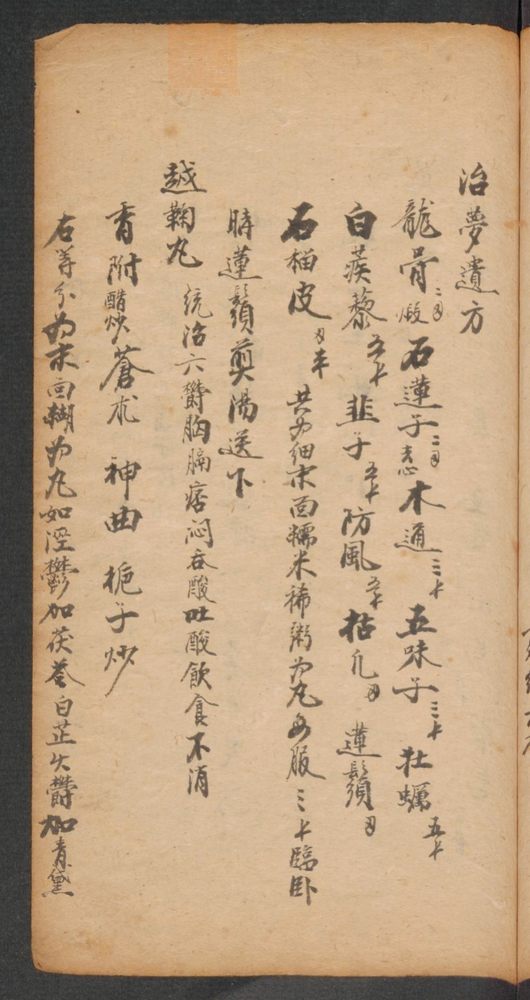 治夢遺方
龍骨二刄煅 石蓮子二刄去心 木通三卜 五味子三卜 牡蠣五卜
白蒺藜五卜 韭子五卜 防風五卜 枯凡刄 蓮鬚刄
石榴皮刄半 共为細末面糯米稀粥为丸每服三卜臨卧
時蓮鬚煎湯送下
越鞠丸 統治六欝胸膈痞闷吞酸吐酸飲食不消
香附醋炒 蒼朮 神曲 梔子炒
右等分为末面糊为丸如溼鬱加茯苓白芷火欝加青黛